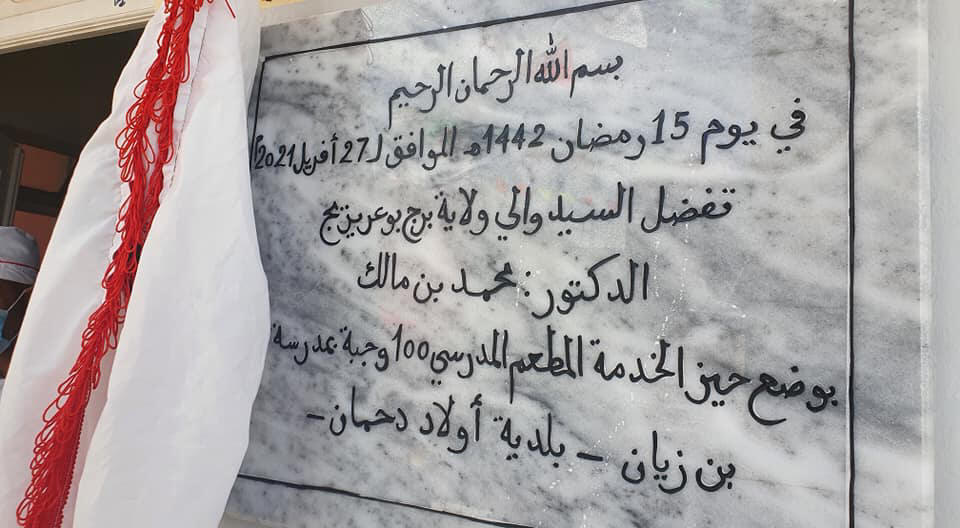 بسم الله الرحمان الرحيم
في يوم 15 رمضان 1442هـ الموافق لـ 27 أفريل 2021م
تفضل السيد والي ولاية برج بوعريريج
الدكتور: محمد بن مالك
بوضع حيز الخدمة المطعم المدرسي 100 وجبة بمدرسة
بن زيان - بلدية أولاد دحمان -